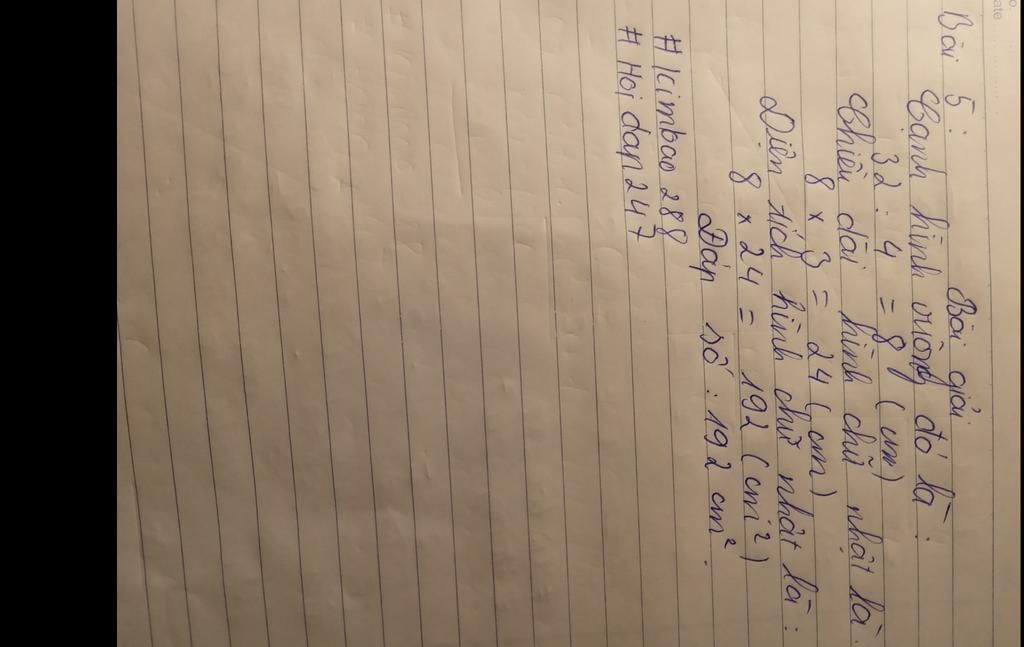 Bài 5:
Bài giải
Cạnh hình vuông đó là:
32 : 4 = 8 (cm)
Chiều dài hình chữ nhật là:
8 x 3 = 24 (cm)
Diện tích hình chữ nhật là:
8 x 24 = 192 (cm²)
Đáp số: 192 cm².
# kimbao 288
# Hoi dap 247